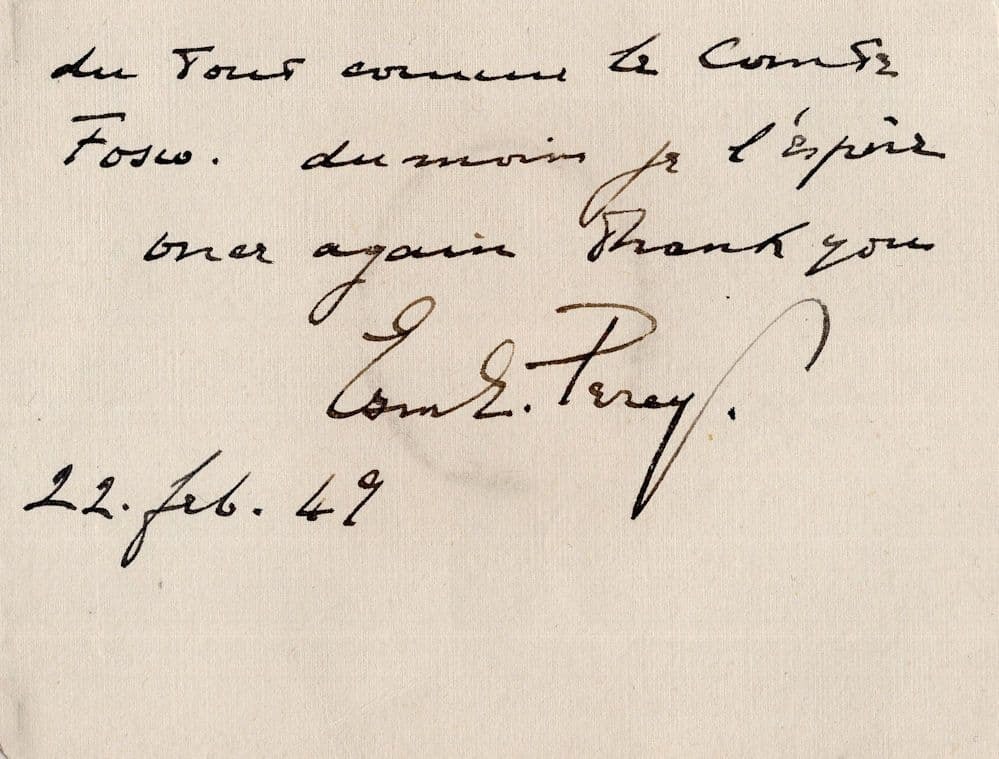 du tout comme le Comte
Fosco. du moins je l'éspère
once again Thank you
Esme. Percy.
22. feb. 49